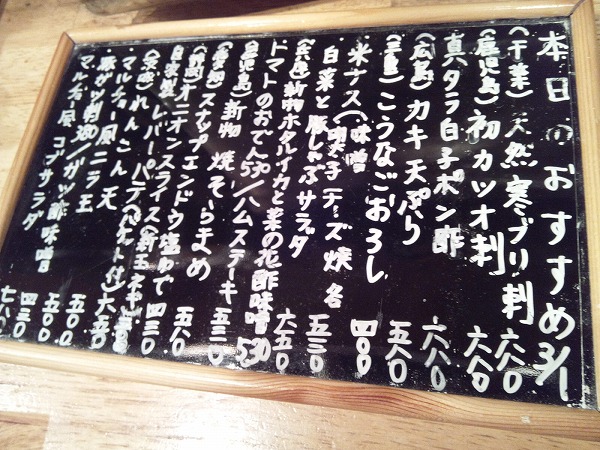 本日のおすすめ 3/1
(千葉) 天然寒ブリ刺 六八〇
(鹿児島) 初カツオ刺 六八〇
真タラ白子ポン酢 六八〇
(広島) カキ天ぷら 五八〇
(三重) こうなごおろし 四〇〇
米ナス(味噌 チーズ焼 各 五三〇
白菜と豚しゃぶサラダ 六五〇
(兵庫) 新物ホタルイカと菜の花酢味噌 530
トマトのおでん530/ハムステーキ 五三〇
(鹿児島) 新物 焼そらまめ 五八〇
(愛知) スナップエンドウ塩ゆで 四三〇
(静岡) オニオンスライス(新玉ネギ)
自家製レバーパテ(バケット付) 六五〇
(茨城) れんこん天 四三〇
マルチョー風ニラ玉 五〇〇
豚ガツ刺/ガツ酢味噌
マルチョー風コブサラダ 七八〇